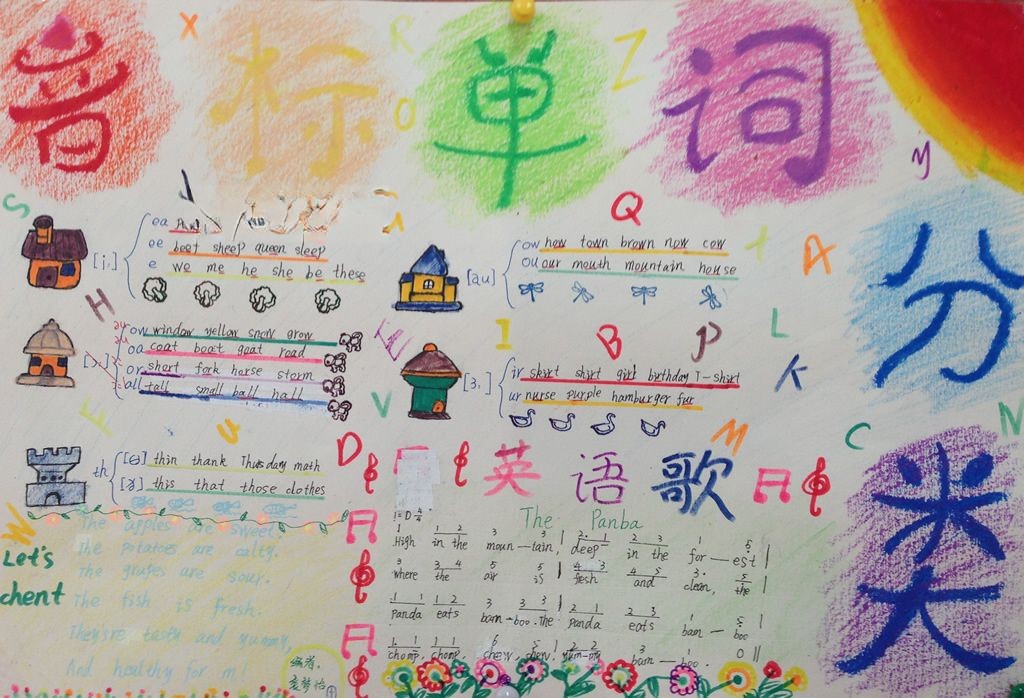 音标单词
分类
ea
ee beet sheep queen sleep
e we me he she be these
[i:]
ow how town brown now cow
ou our mouth mountain house
[au]
ow window yellow snow grow
oa coat boat goat road
or short fork horse storm
all tall small ball hall
ir skirt shirt girl birthday T-shirt
ur nurse purple hamburger fur
[ɜ:]
th [θ] thin thank Thusday math
this that those clothes
X R O Z y S Q A H I B P L K E V F U D M C N W
英语歌
The Panba
1=D 2/4
High in the moun—tain, deep in the for—est
where the air is fresh and clean, the
panda eats bam—boo. The panda eats bam—boo
chomp, chomp, chew, chew, yum-my bam—boo.
Let's
chent
The apples are sweet.
The potatoes are salty.
The grapes are sour.
The fish is fresh.
They're tasty and yummy,
And healthy for m!
编者: